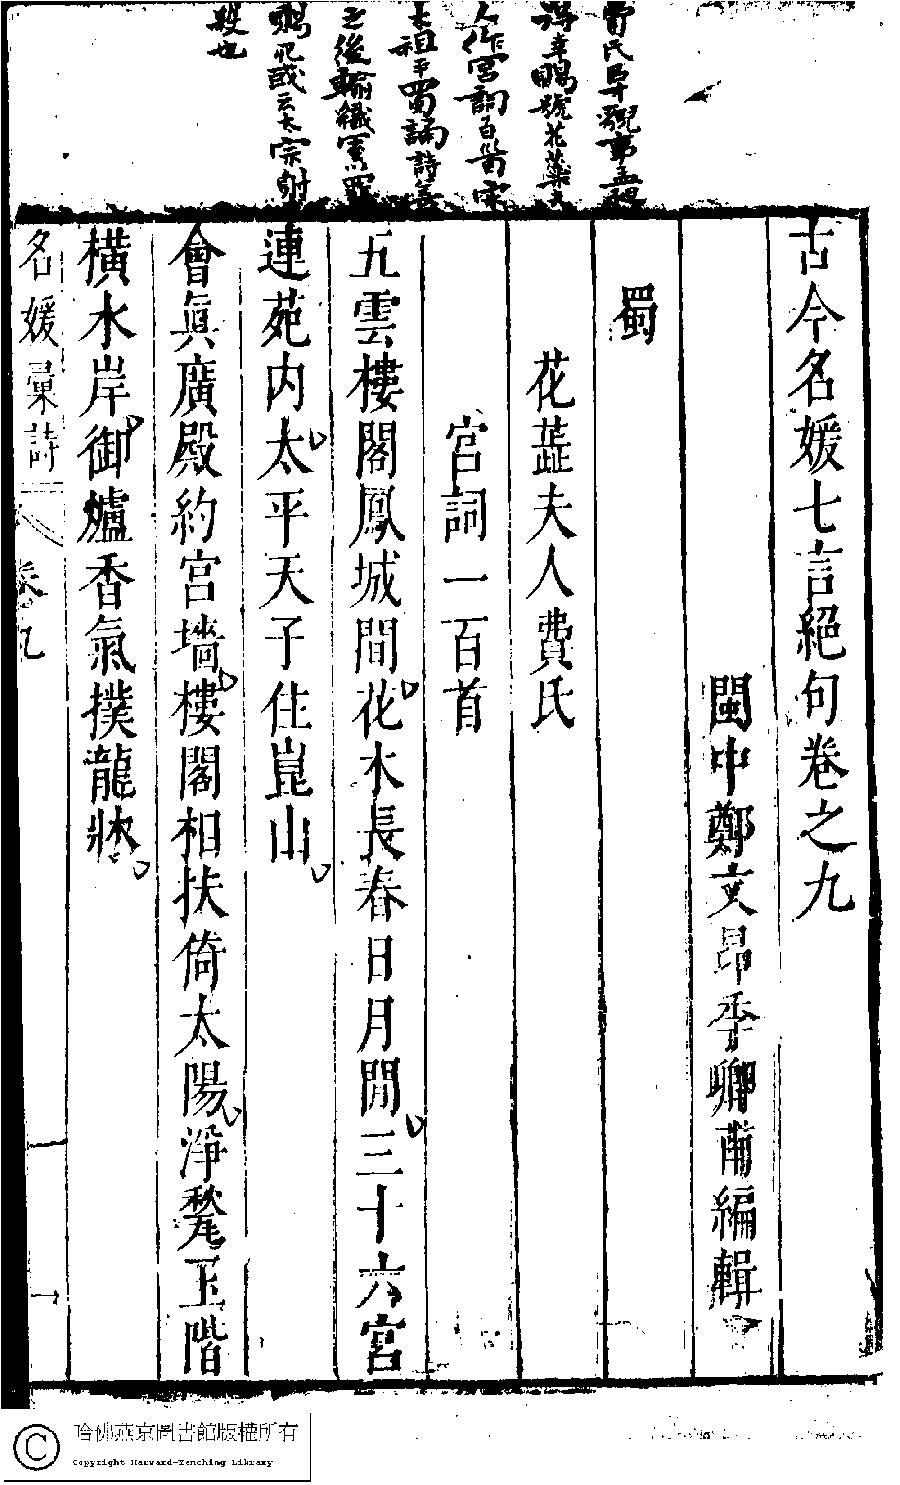 費氏事孟昶
得幸賜號花蘂夫
人作宮詞百首宋
太祖平蜀誦詩善
之後輸織室以罪
賜死或云太宗射
殺也
古今名媛七言絕句卷之九
閩中鄭文昂季卿甫編輯
蜀
花蕋夫人費氏
宮詞一百首
五雲樓閣鳳城間花木長春日月閒三十六宮
連苑内太平天子住崑山
會眞廣殿約宮墻樓閣相扶倚太陽淨甃玉階
橫水岸御爐香氣撲龍牀
名媛彙詩
卷九
一
哈佛燕京圖書館版權所有
Copyright Harvard-Yenching Library